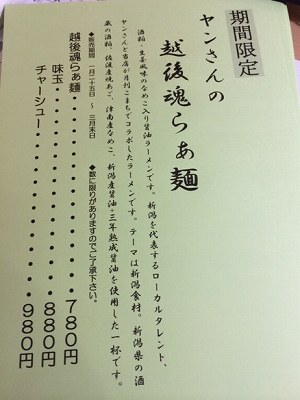 期間限定
ヤンさんの
越後魂らぁ麺
酒粕・生姜風味のなめこ入り醤油ラーメンです。新潟を代表するローカルタレント、
ヤンさんと当店が月刊こまちでコラボしたラーメンです。テーマは新潟食材。新潟県の酒
蔵の酒粕、佐渡産焼あご、津南産なめこ、新潟産醤油・三年熟成醤油を使用した一杯です。
◆販売期間 一月二十五日 ～ 三月末日 ◆数に限りがありますのでご了承下さい。
越後魂らぁ麺・・・・・・・780円
味玉・・・・・・・・・・・880円
チャーシュー・・・・・・・980円